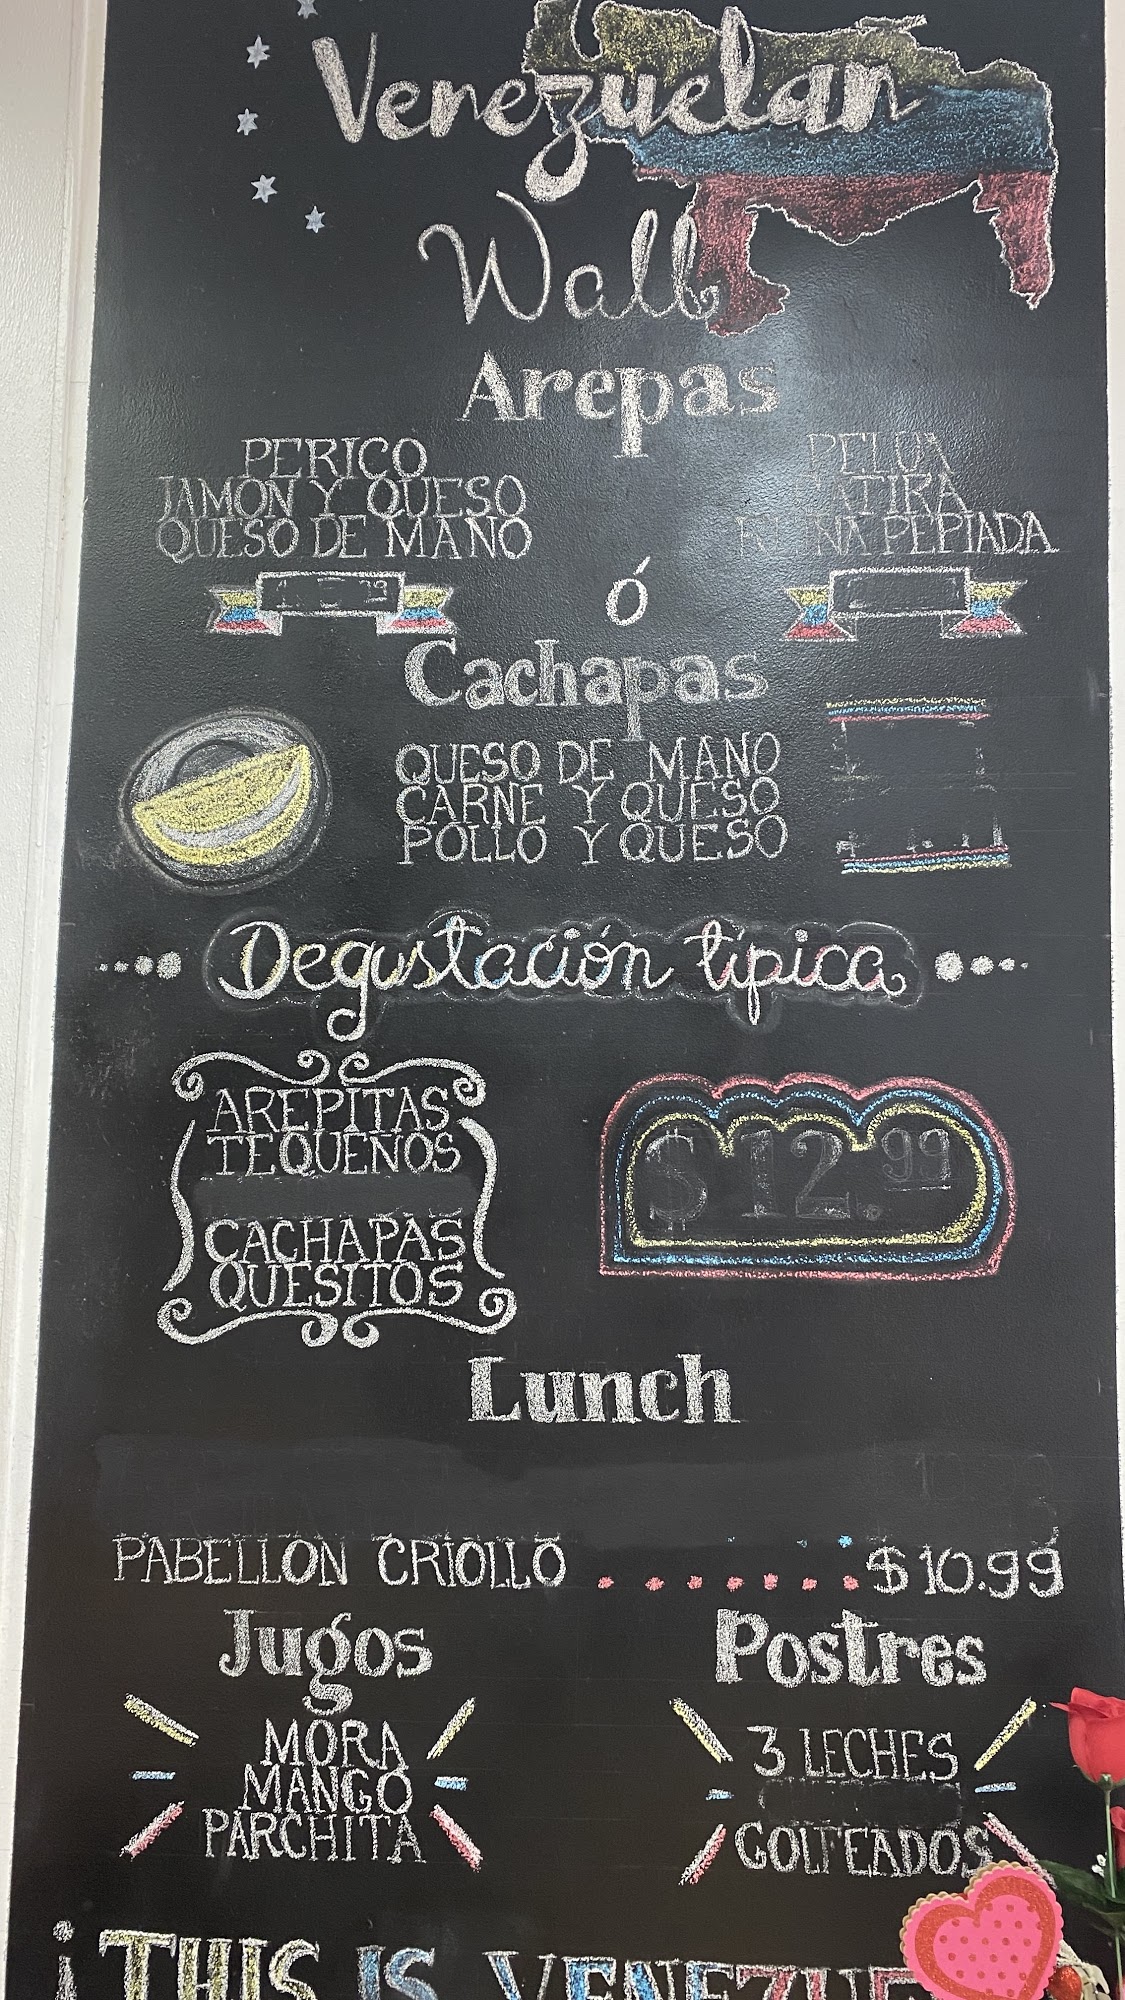 Venezuelan
Wall
Arepas
PERICO
JAMON Y QUESO
QUESO DE MANO
PELUA
CATIRA
REINA PEPIADA
ó
Cachapas
QUESO DE MANO
CARNE Y QUESO
POLLO Y QUESO
Degustación típica
AREPITAS
TEQUEÑOS
CACHAPAS
QUESITOS
$12.99
Lunch
PABELLON CRIOLLO ....... $10.99
Jugos
MORA
MANGO
PARCHITA
Postres
3 LECHES
GOLFEADOS
¡THIS IS